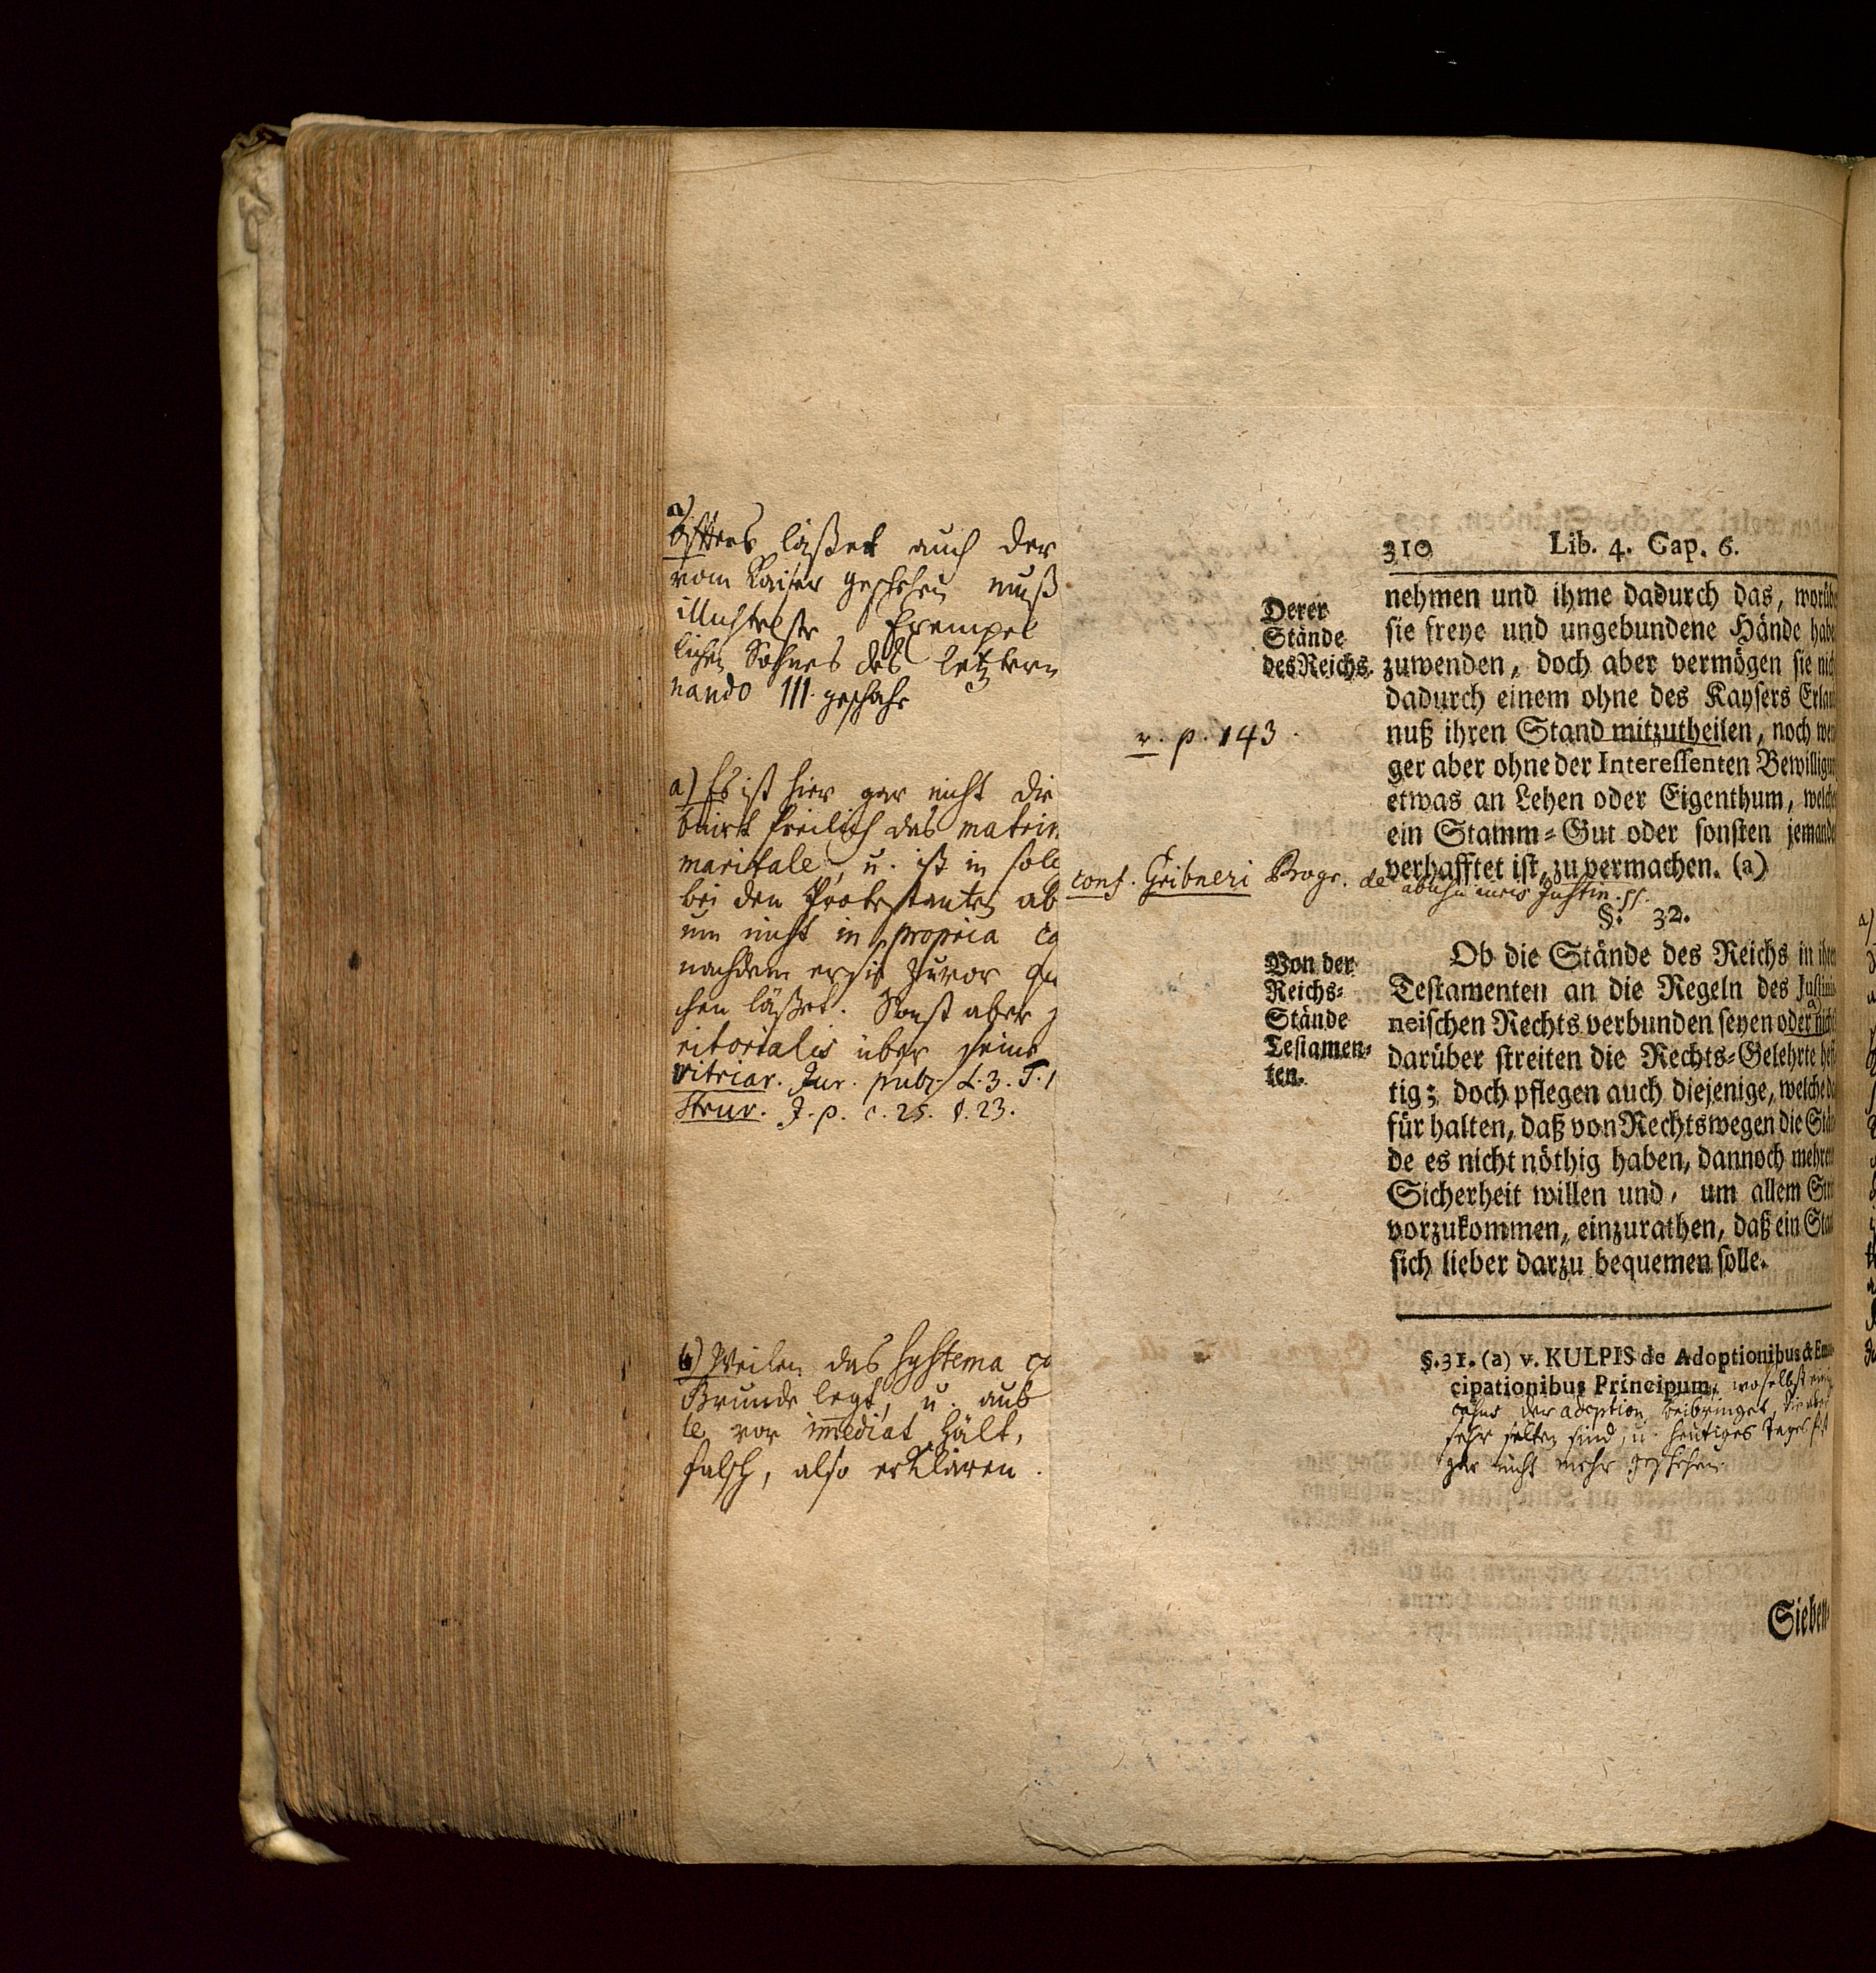 a)
öffters läßet auch der
vom Kaiser geschehen muß
illustreste Exempel
lichen Sohnes des letztern
nando III. geschahe
a) Es ist hier gar nicht die
freilich das matrim
maritale, u. ist in sol
bei den Protestanten ab
nicht in propria ca
nachdem er sie zuvor
chen läßet. Sonst aber
ritorialis über seine
vitriar. Jur. publ. L. 3. T. 1
Struv. J. p. c. 25. §. 23.
b) Weilen das Systema co
Grunde legt, u. aus
te vor immediat hält,
falsch, also erklären.
310 Lib. 4. Cap. 6.
Derer
Stände
des Reichs.
nehmen und ihme dadurch das, worübe
sie freye und ungebundene Hände habe
zuwenden, doch aber vermögen sie nich
dadurch einem ohne des Kaysers Erlau
nuß ihren Stand mitzutheilen, noch we
ger aber ohne der Interessenten Bewilligun
etwas an Lehen oder Eigenthum, welche
ein Stamm-Gut oder sonsten jemande
verhafftet ist, zu vermachen. (a)
v. p. 143.
conf. Gribneri Progr. de abusu iuris Justin. pp.
§. 32.
Von der
Reichs-
Stände
Testamen-
ten.
Ob die Stände des Reichs in ihre
Testamenten an die Regeln des Justinia
neischen Rechts verbunden seyen oder nicht
darüber streiten die Rechts-Gelehrte hef
tig; doch pflegen auch diejenige, welche da
für halten, daß von Rechtswegen die Stän
de es nicht nöthig haben, dannoch mehre
Sicherheit willen und, um allem Str
vorzukommen, einzurathen, daß ein Stan
sich lieber darzu bequemen solle.
§. 31. (a) v. KULPIS de Adoptionibus & Eman
cipationibus Principum, woselbst einig
casus der adoption beibringet, die aber
sehr selten sind, u. heutiges Tages fast
gar nicht mehr geschehen.
Sieben